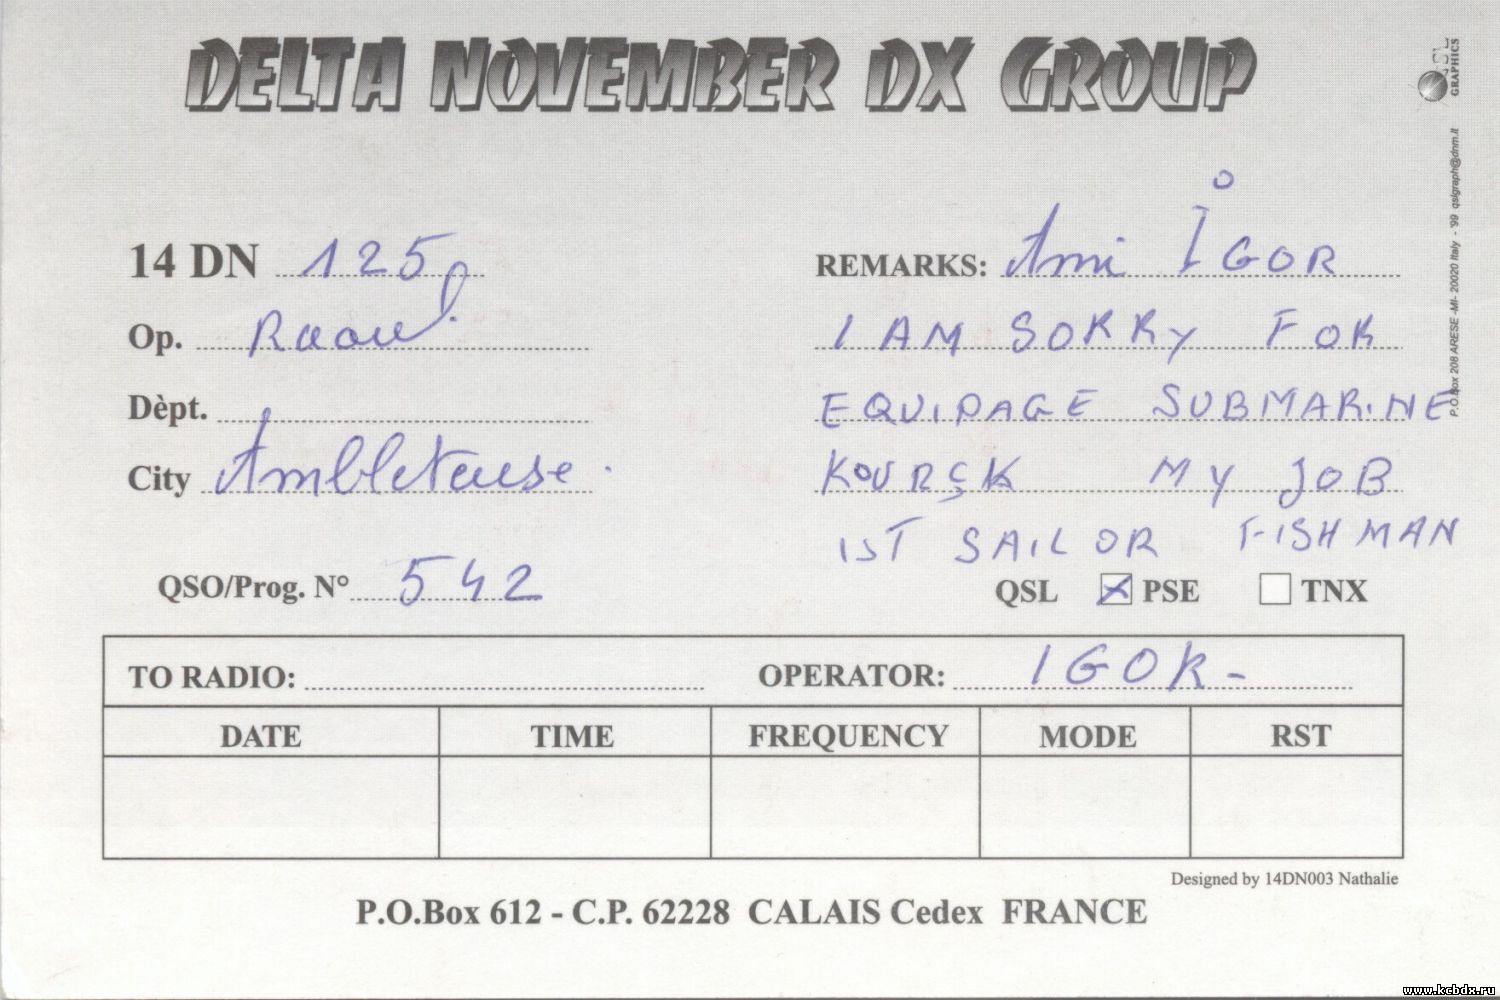 DELTA NOVEMBER DX GROUP
QSL GRAPHICS
P.O.Box 208 ARESE -MI- 20020 Italy - '99 qslgraph@dnm.it
14 DN 125
Op. Raoul
Dèpt.
City Ambleteuse.
QSO/Prog. N° 542
REMARKS: Ami IGOR
I AM SORRY FOR
EQUIPAGE SUBMARINE
KOURSK MY JOB
IST SAILOR FISHMAN
QSL PSE TNX
TO RADIO: OPERATOR: IGOR-
DATE TIME FREQUENCY MODE RST
Designed by 14DN003 Nathalie
P.O.Box 612 - C.P. 62228 CALAIS Cedex FRANCE
www.kcbdx.ru